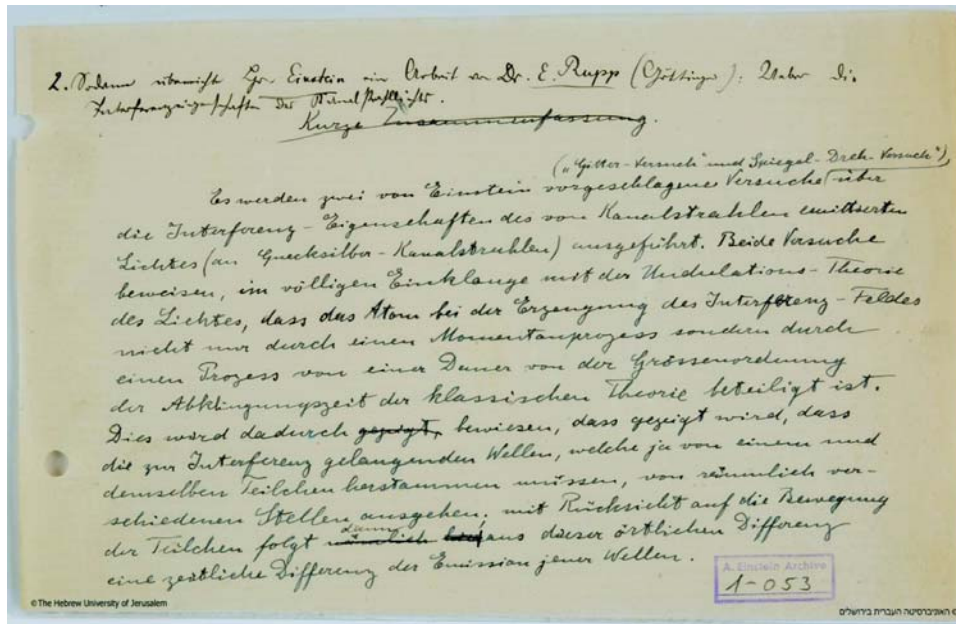 2. Sodann überreicht Hr. Einstein eine Arbeit von Dr. E. Rupp (Göttingen): Ueber die
Interferenzeigenschaften des Kanalstrahllichts.
Kurze Zusammenfassung.
("Gitter-Versuch" und Spiegel-Dreh-Versuch"),
Es werden zwei von Einstein vorgeschlagene Versuche über
die Interferenz-Eigenschaften des von Kanalstrahlen emittierten
Lichtes (an Quecksilber-Kanalstrahlen) ausgeführt. Beide Versuche
beweisen, im völligen Einklange mit der Undulations-Theorie
des Lichtes, dass das Atom bei der Erzeugung des Interferenz-Feldes
nicht nur durch einen Momentanprozess sondern durch
einen Prozess von einer Dauer von der Grössenordnung
der Abklingungszeit der klassischen Theorie beteiligt ist.
Dies wird dadurch gezeigt, bewiesen, dass gezeigt wird, dass
die zur Interferenz gelangenden Wellen, welche ja von einem und
demselben Teilchen herstammen müssen, von räumlich ver-
schiedenen Stellen ausgehen; mit Rücksicht auf die Bewegung
dann
der Teilchen folgt nämlich aus dieser örtlichen Differenz
eine zeitliche Differenz der Emission jener Wellen.
A. Einstein Archive
1-053
©The Hebrew University of Jerusalem
© האוניברסיטה העברית בירושלים